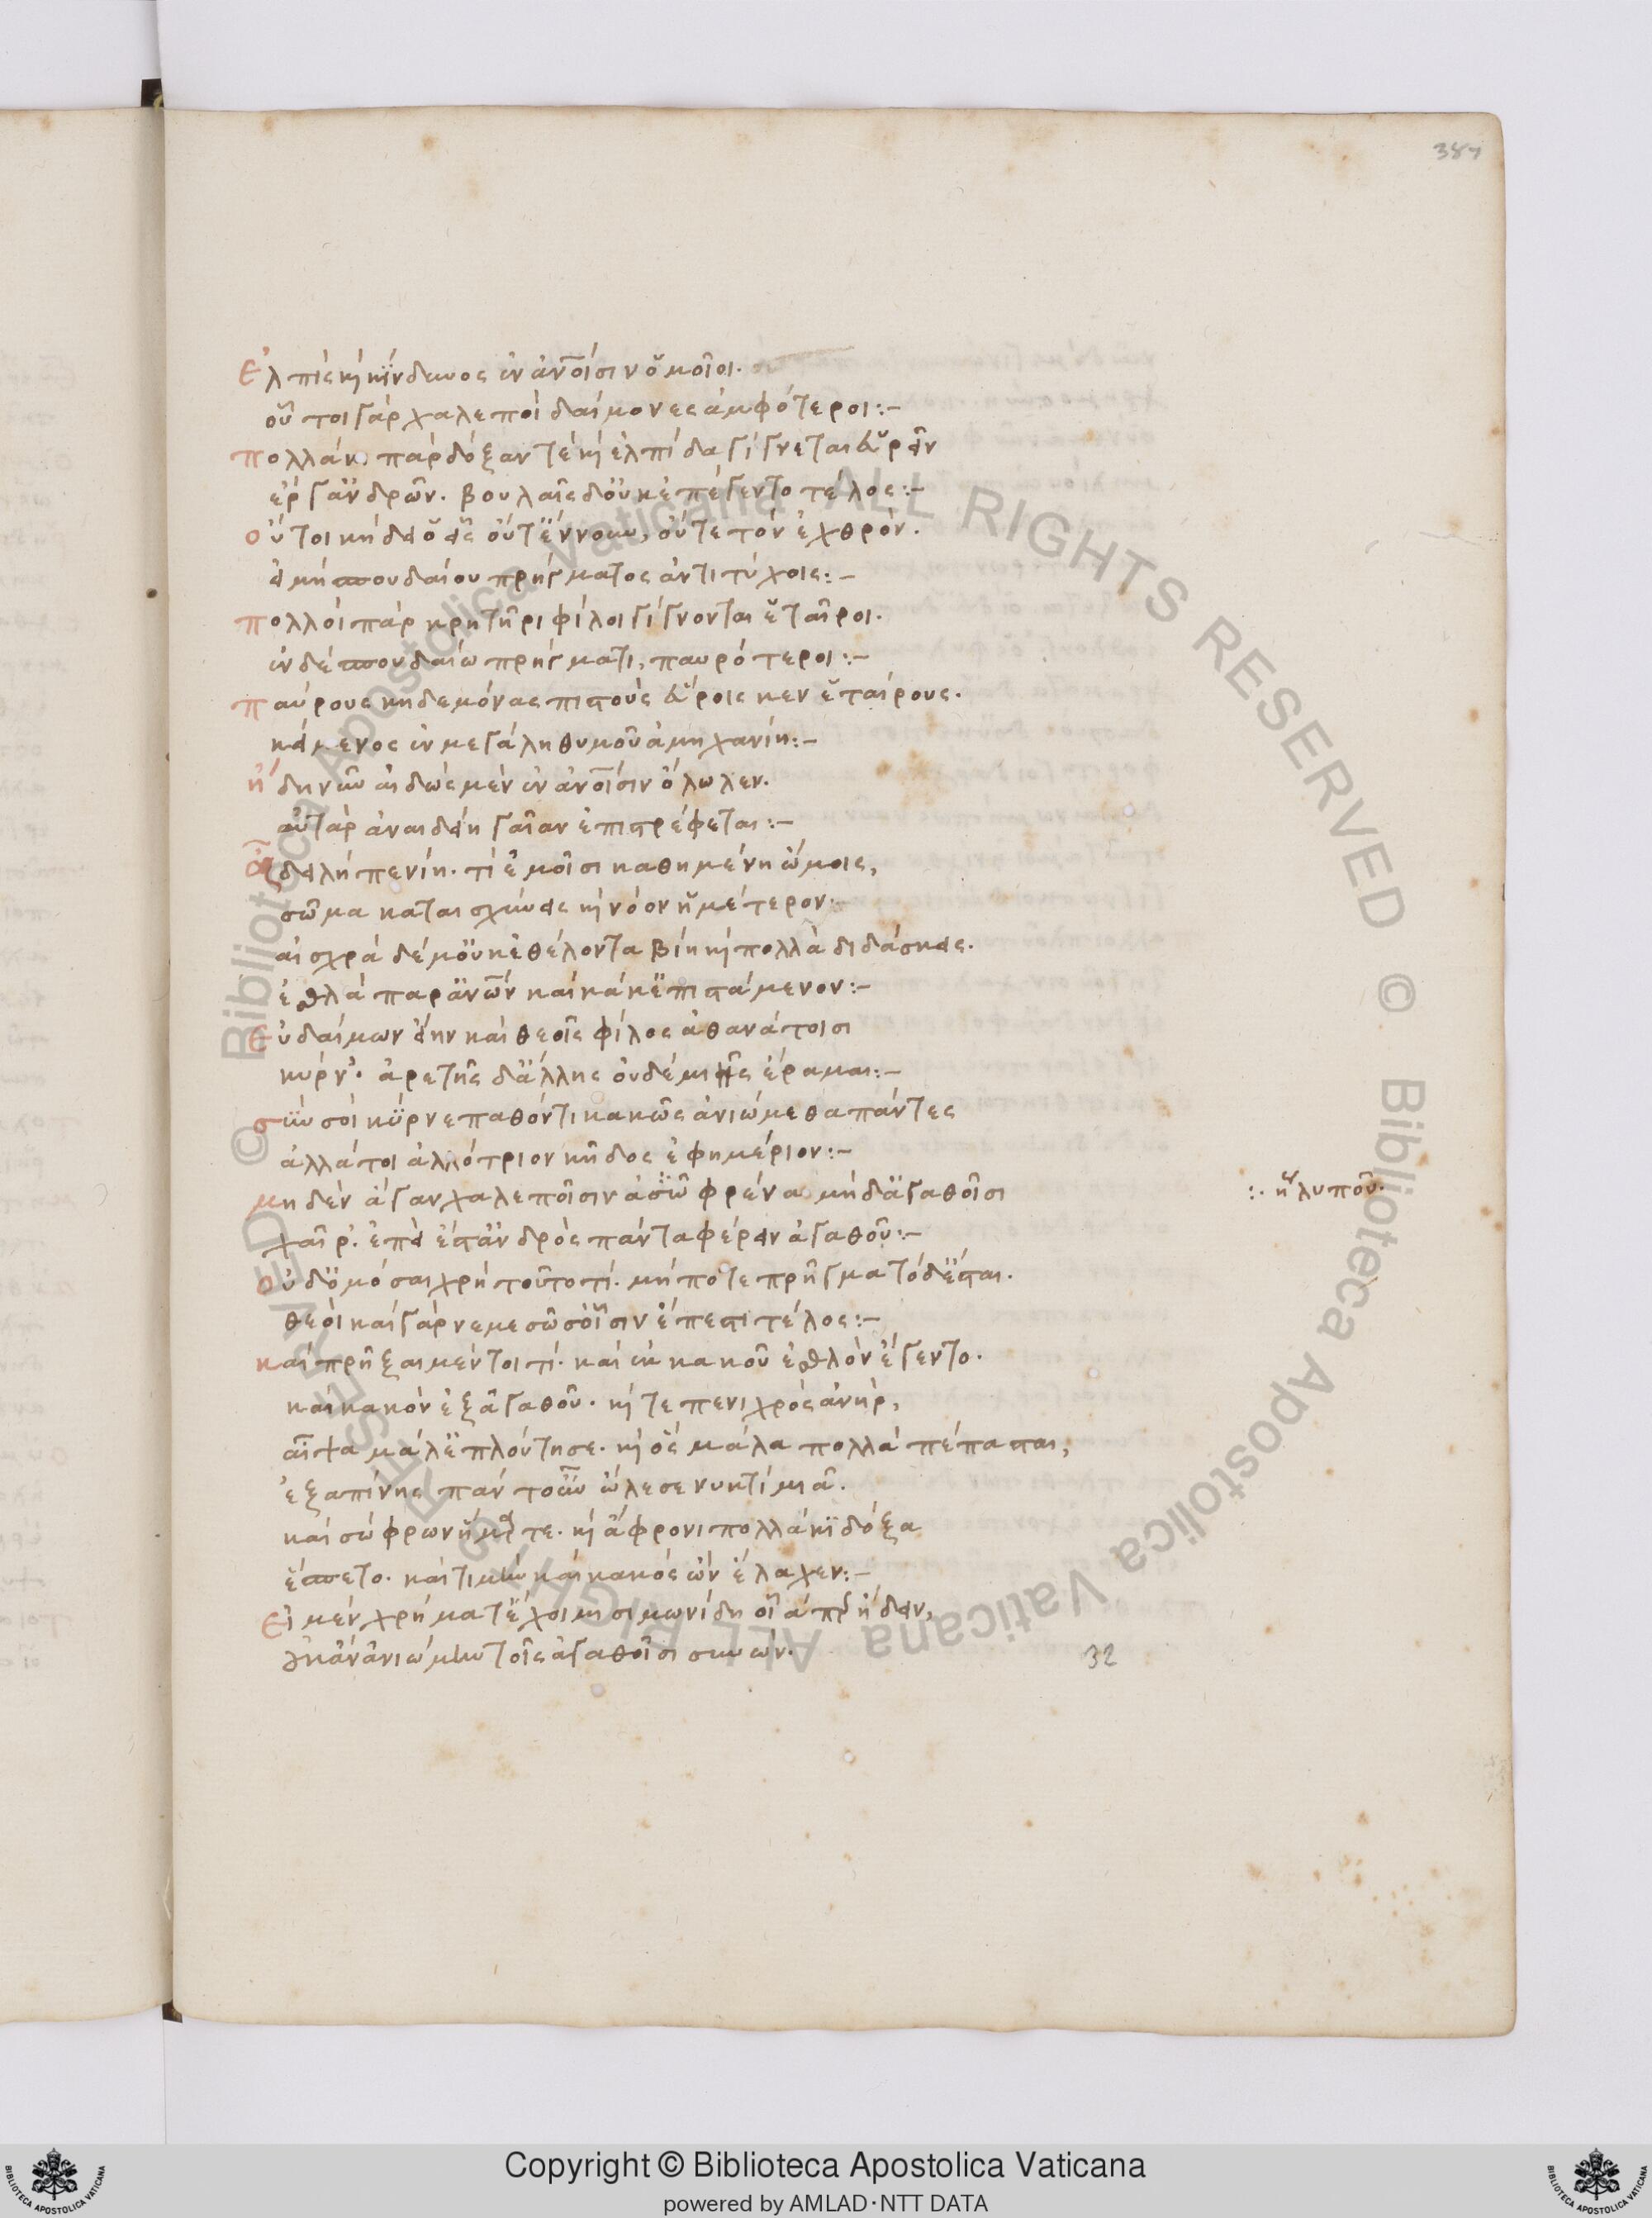 387
Ἐλπὶς καὶ κίνδυνος ἐν ἀνθρώποισιν ὁμοῖοι.
οὗτοι γὰρ χαλεποὶ δαίμονες ἀμφότεροι:–
πολλάκι πὰρ δόξαν τὲ καὶ ἐλπίδα γίγνεται εὑρεῖν
ἔργ' ἀνδρῶν. βουλαῖς δ' οὐκ ἐπέγεντο τέλος:–
οὔτοι κηδ εἰδεῖς οὔτ' εὔνουν, οὔτε τὸν ἐχθρὸν.
εἰ μὴ σπουδαίου πρήγματος ἀντιτύχοις:–
πολλοὶ πὰρ κρητῆρι φίλοι γίγνονται ἑταῖροι.
ἐν δὲ σπουδαίω πρήγματι, παυρότεροι:–
παύρους κηδεμόνας πιστοὺς εὕροις κεν ἑταίρους.
κείμενος ἐν μεγάλη θυμοῦ ἀμηχανίη:–
ἤδη νῦν αἰδὼς μὲν ἐν ἀνθρώποισιν ὄλωλεν.
αὐτὰρ ἀναιδείη γαῖαν ἐπιστρέφεται:–
ἆ δειλὴ πενίη. τί ἐμοῖσι καθημένη ὤμοις,
σῶμα καταισχύνεις καὶ νόον ἡμέτερον.
αἰσχρὰ δέ μ' οὐκ ἐθέλοντα βίη καὶ πολλὰ διδάσκεις.
ἐσθλὰ παρ' ἀνθρώπων καὶ κάλ' ἐπιστάμενον:–
Εὐδαίμων εἴην καὶ θεοῖς φίλος ἀθανάτοισι
κύρν'. ἀρετῆς δ' ἄλλης οὐδέμιῆς ἔραμαι:–
σὺν σοὶ κύρνε παθόντι κακῶς ἀνιώμεθα πάντες
ἀλλά τοι ἀλλότριον κῆδος ἐφημέριον:–
μηδὲν ἄγαν χαλεποῖσιν ἀσῶ φρένα μήδ' ἀγαθοῖσι
:· ἢ λυποῦ.
χαῖρ'. ἐπεὶ ἔστ' ἀνδρὸς πάντα φέρειν ἀγαθοῦ:–
οὐδ' ὀμόσαι χρὴ τοῦτο τί. μήποτε πρῆγμα τόδ' ἔσται.
θεοὶ καὶ γὰρ νεμεσῶσ' οἷσιν ἔπεστι τέλος:–
καὶ πρῆξαι μέντοι τί. καὶ ἐκ κακοῦ ἐσθλὸν ἔγεντο.
καὶ κακὸν ἐξ ἀγαθοῦ. καί τε πενιχρὸς ἀνὴρ,
αἶψα μάλ' ἐπλούτησε. καὶ ὃς μάλα πολλὰ πέπασται,
ἐξαπίνης πάντ' οὖν ὤλεσε νυκτὶ μιᾶ.
καὶ σώφρων ἥμαρτε. καὶ ἄφρονι πολλάκι δόξα
ἕσπετο. καὶ τιμὴν καὶ κακὸς ὢν ἔλαχεν:–
Εἰ μὲν χρήματ' ἔχοιμι σιμωνίδη οἷά περ ἤδειν,
οὐκ ἂν ἀνιώμην τοῖς ἀγαθοῖσι συνών.
32
© Biblioteca Apostolica Vaticana ALL RIGHTS RESERVED © Biblioteca Apostolica Vaticana ALL RIGHTS RESERVED
Copyright © Biblioteca Apostolica Vaticana
powered by AMLAD · NTT DATA
BIBLIOTECA APOSTOLICA VATICANA
BIBLIOTECA APOSTOLICA VATICANA